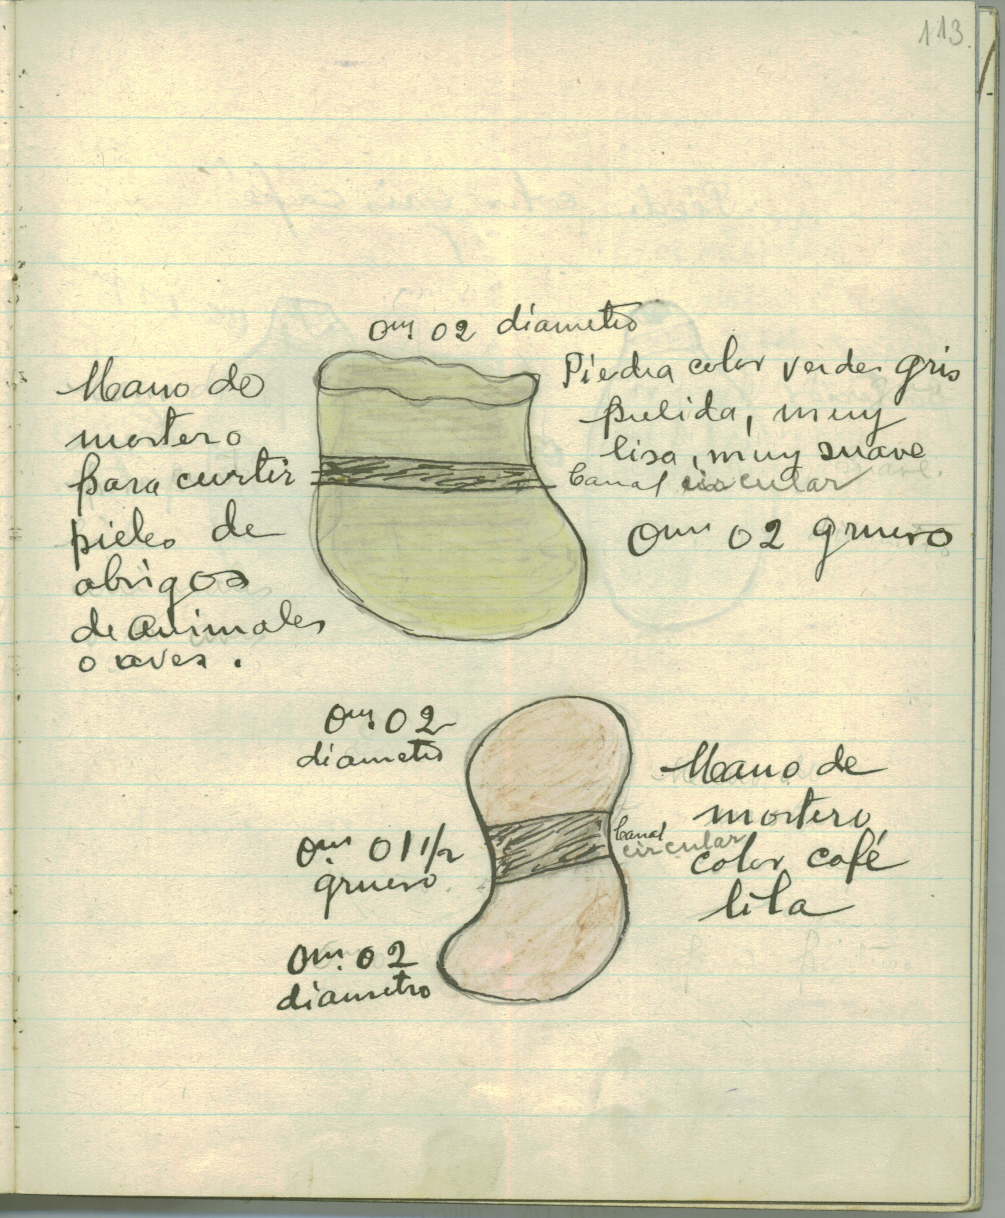 113.
0m. 02 diametro
Mano de
mortero
para curtir
pieles de
abrigos
de animales
o aves.
Piedra color verde gris
pulida, muy
lisa, muy suave
Canal circular
0m 02 grueso
0m. 02
diametro
0m. 01 1/2
grueso.
0m. 02
diametro
Canal
circular
Mano de
mortero
color café
lila